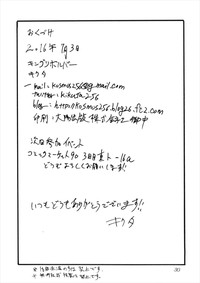 おくづけ
2016年7月3日
キングリボルバー
キクタ
mail: kosmos256@gmail.com
twitter: kikuta256
blog: http://kosmos256.blog26.fc2.com
印刷: 大陽出版株式会社 御中
次回参加イベント
コミックマーケット90 3日目 東ト-16a
どうぞよろしくお願いします!!
いつもどうもありがとうございます!!
キクタ
30